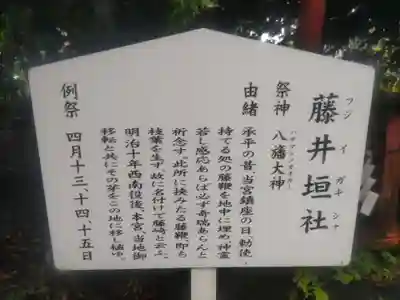 藤井垣社
フジイガキシャ
祭神 八旛大神
ハチマンノオオカミ
由緒 承平の昔、当宮鎮座の日、勅使、
持てる処の藤鞭を地中に埋め「神霊
若し感応あらば必ず奇瑞あらんと
祈念す。此所に挟みたる藤鞭、即ち
枝葉を生ず。故に名付けて藤崎と云ふ。
明治十年西南役後、本宮、当地御
移転と共にその芽をこの地に移し植ゆ。
例祭 四月十三、十四、十五日